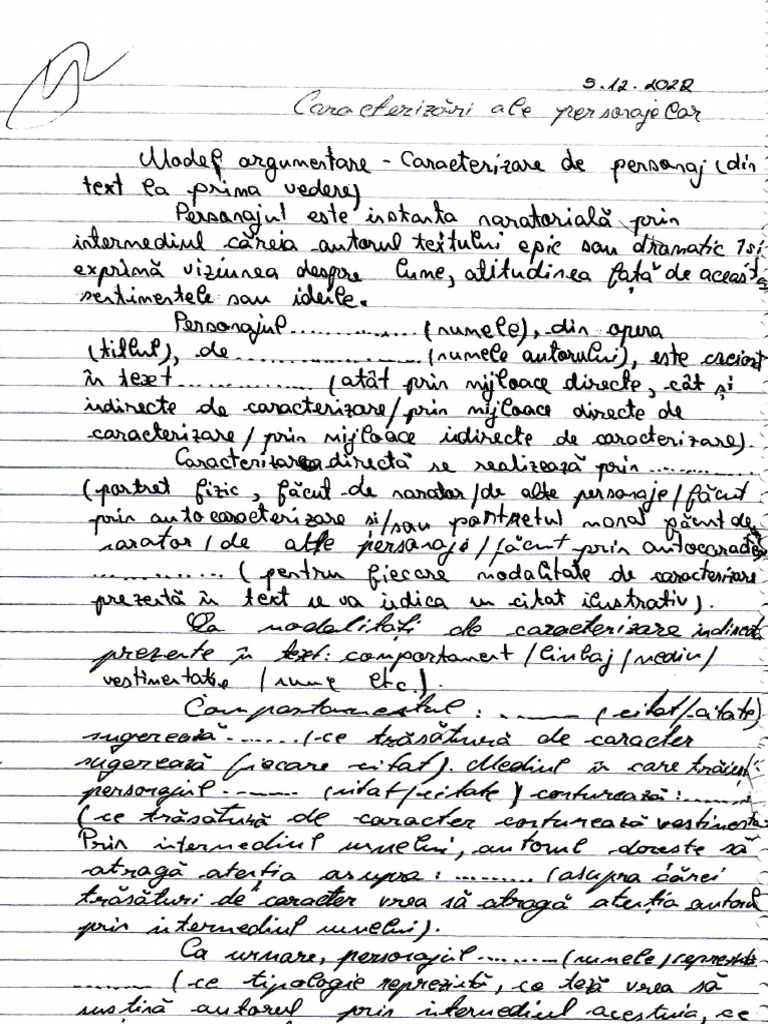 5.12.2022
Caracterizări ale personajelor
Model argumentare - Caracterizare de personaj (din
text la prima vedere)
Personajul este instanta naratorială prin
intermediul căreia autorul textului epic sau dramatic își
exprimă viziunea despre lume, atitudinea față de aceasta,
sentimentele sau ideile.
Personajul................(numele), din opera
(titlul), de .................(numele autorului), este creionat
în text................(atât prin mijloace directe, cât și
indirecte de caracterizare/prin mijloace directe de
caracterizare/prin mijloace indirecte de caracterizare).
Caracterizarea directă se realizează prin ..........
(portret fizic, făcut de narator/de alte personaje/făcut
prin autocaracterizare si/sau portretul moral făcut de
narator/de alte personaje/făcut prin autocaracte
............. (pentru fiecare modalitate de caracterizare
prezentă în text se va indica un citat ilustrativ).
Ca modalități de caracterizare indirectă
prezente în text: comportament/limbaj/mediu/
vestimentatie/nume etc.).
Comportamentul: ......... (citat/citate)
sugerează.......(ce trăsătură de caracter
sugerează fiecare citat). Mediul în care trăiește
personajul ........ (citat/citate) conturează:.......
(ce trăsătură de caracter conturează vestimenta
Prin intermediul numelui, autorul dorește să
atragă atenția asupra: .......... (asupra cărei
trăsături de caracter vrea să atragă atenția autorul
prin intermediul numelui).
Ca urmare, personajul.........(numele) reprezintă
......... (ce tipologie reprezintă, ce teză vrea să
susțină autorul prin intermediul acestuia, ce